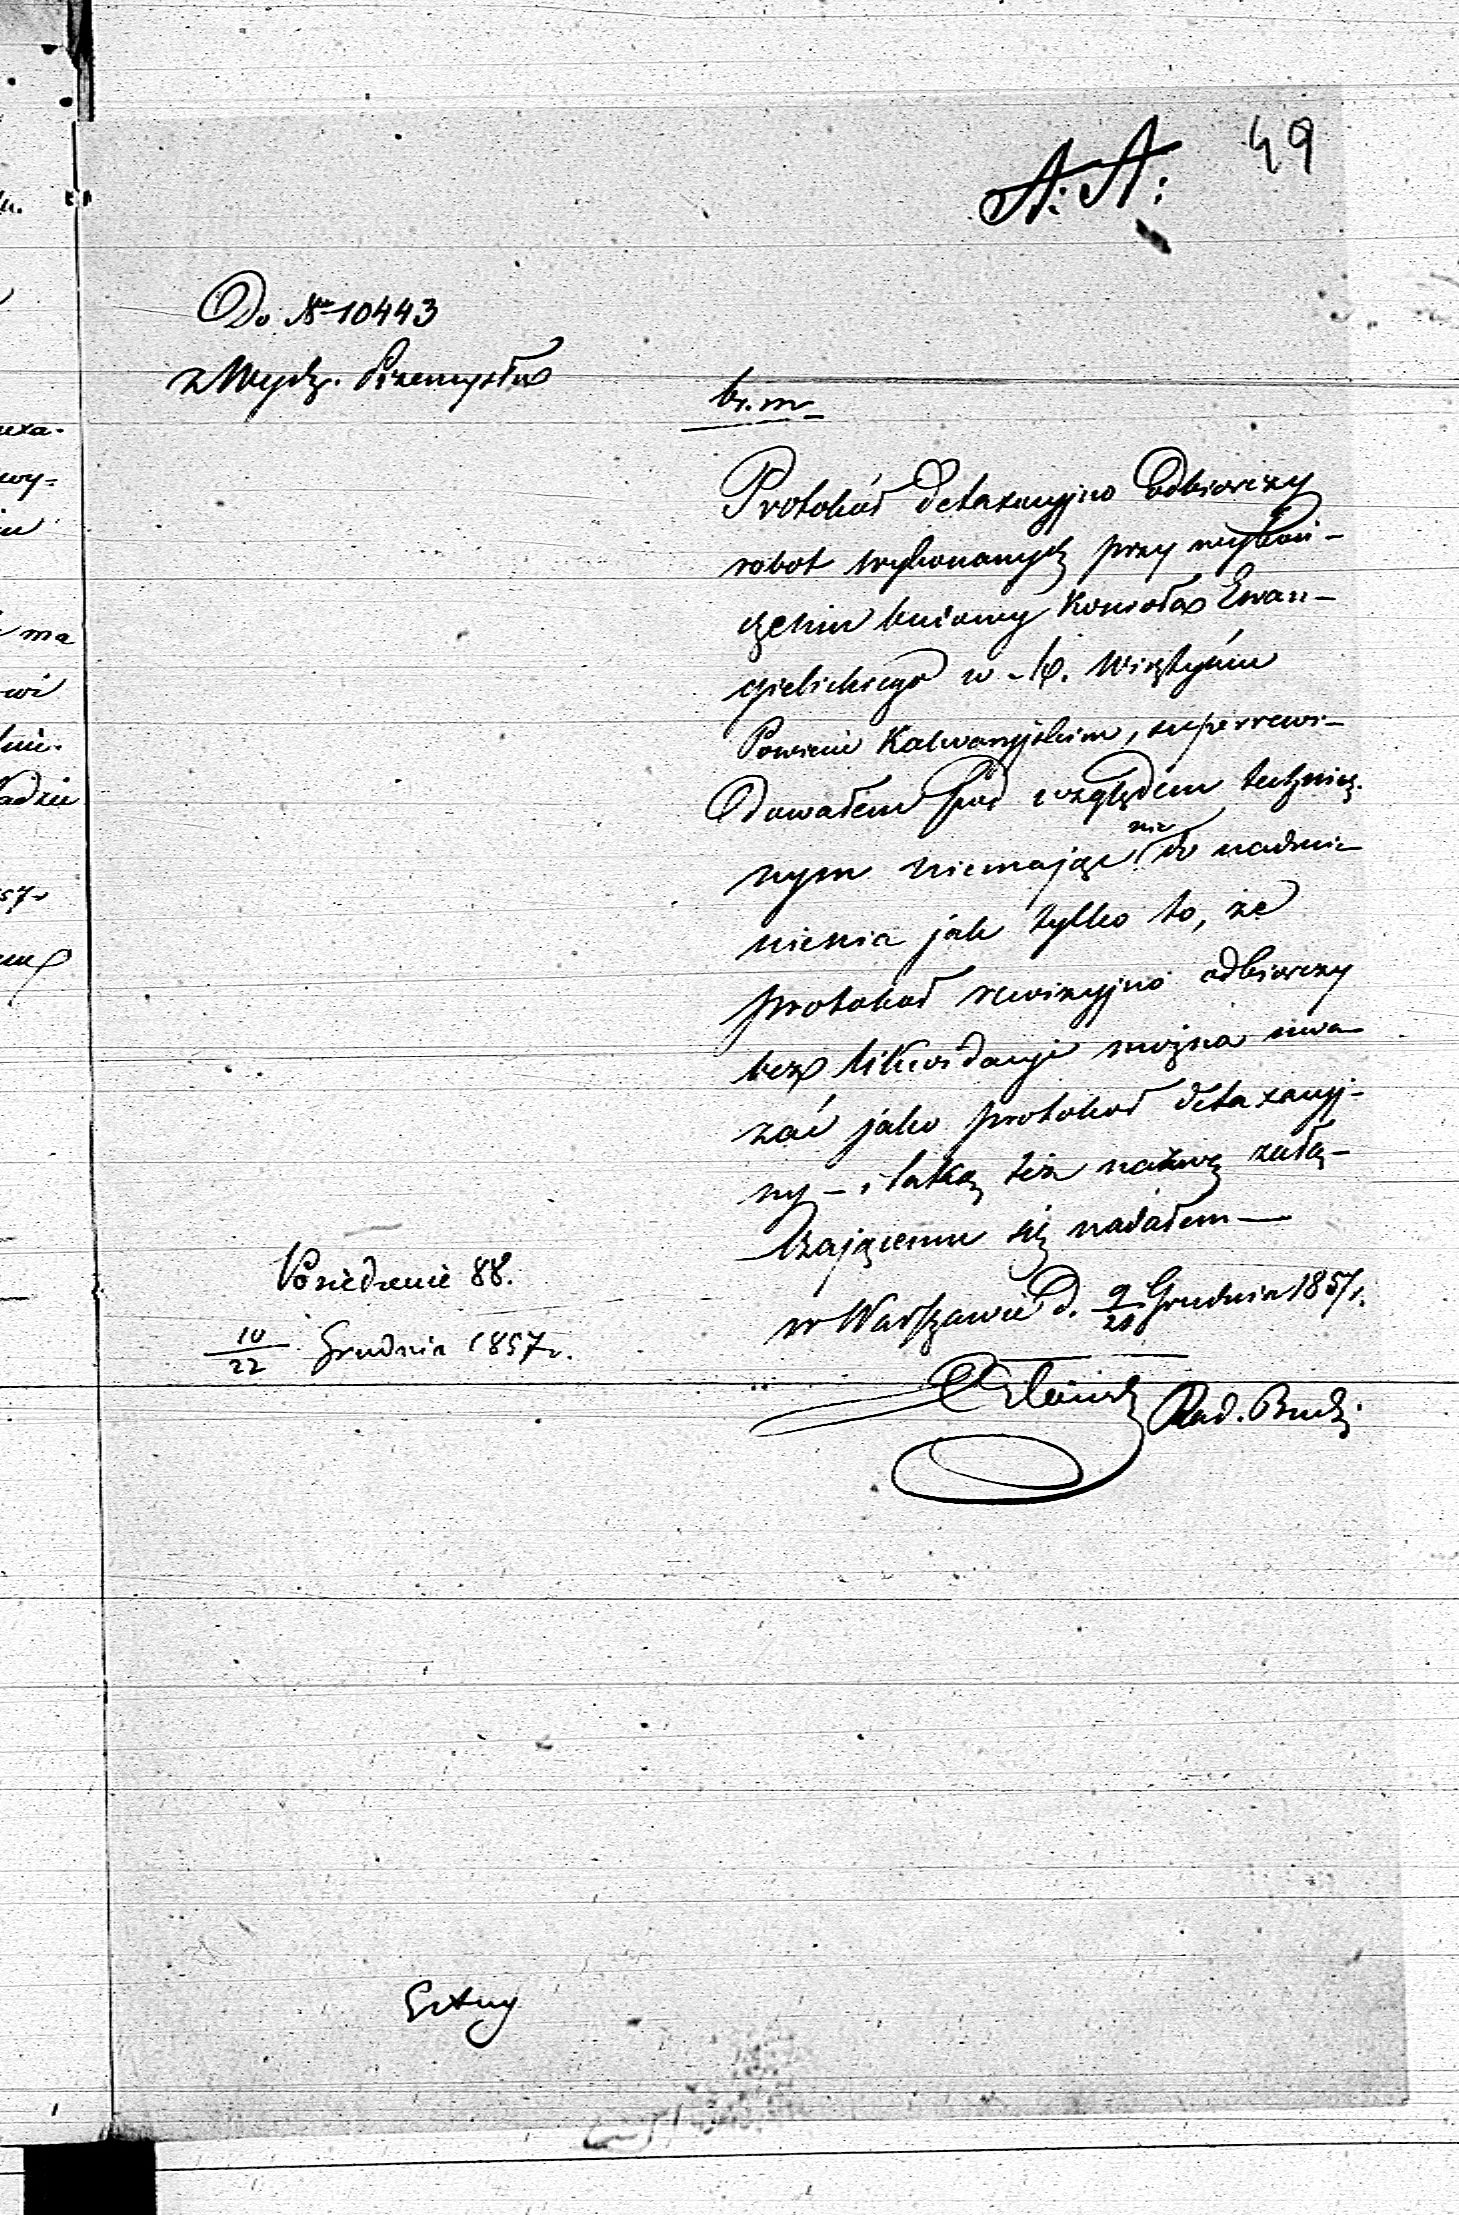 49
A. A.
Do Nru 10443
z Wydz. Przemysłu
br. m
Protokół detaxacyjno Odbiorczy
robot wykonanych przy wykoń-
czeniu budowy Kościoła Ewan-
gielickiego w M. Wisztyńcu
Powiecie Kalwaryjskim, superrewi-
dowałem pod względem technicz.
nym niemając nic do nadmie-
nienia jak tylko to, że
protokół rewizyjno odbiorczy
bez likwidacyi można uwa-
żać jako protokół detaxacyj-
ny – i taką też nazwę załą-
czającemu się nadałem —
w Warszawie d. 9/21 Grudnia 1857 r.
Rad. Bud:
Posiedzenie 88.
10/22 Grudnia 1857 r.